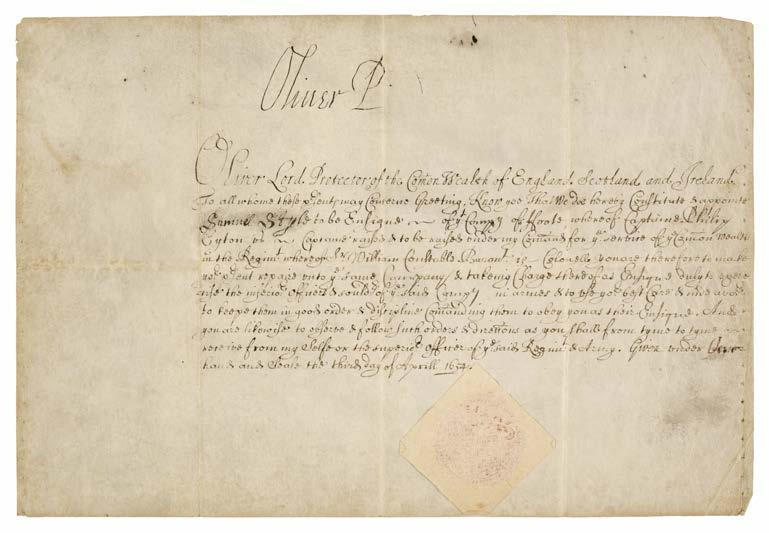 Oliver P
Oliver Lord Protector of the Com̄on Wealth of England Scotland and Ireland
To all whome these p̄sents may Concerne Greeting, Know yee That Wee doe hereby Constitute & appointe
Samuel Style to be Ensigne of yᵉ Compᵃ of ffoote whereof Captaine Phillip
Eyton is Captaine raised & to be raised under my Com̄and for yᵉ service of yᵉ Com̄on Wealth
in the Regimᵗ whereof Sʳ William Constable Baronᵗ is Colonell you are therefore to make
yoʳ p̄sent repaire unto yᵉ same Company & takeing Charge thereof as Ensigne duly to exer
cise the inferioʳ officers & souldʳˢ of yᵉ said Compᵃ in armes & to use yoʳ best Care & endeavoʳ
to keepe them in good order & discipline Com̄anding them to obey you as their Ensigne. And
you are likewise to observe & follow such orders & directions as you shall from tyme to tyme
receive from my Selfe or the superioʳ officers of yᵉ said Regimᵗ & Army. Given under
hand and Seale the third day of Aprill 1654.